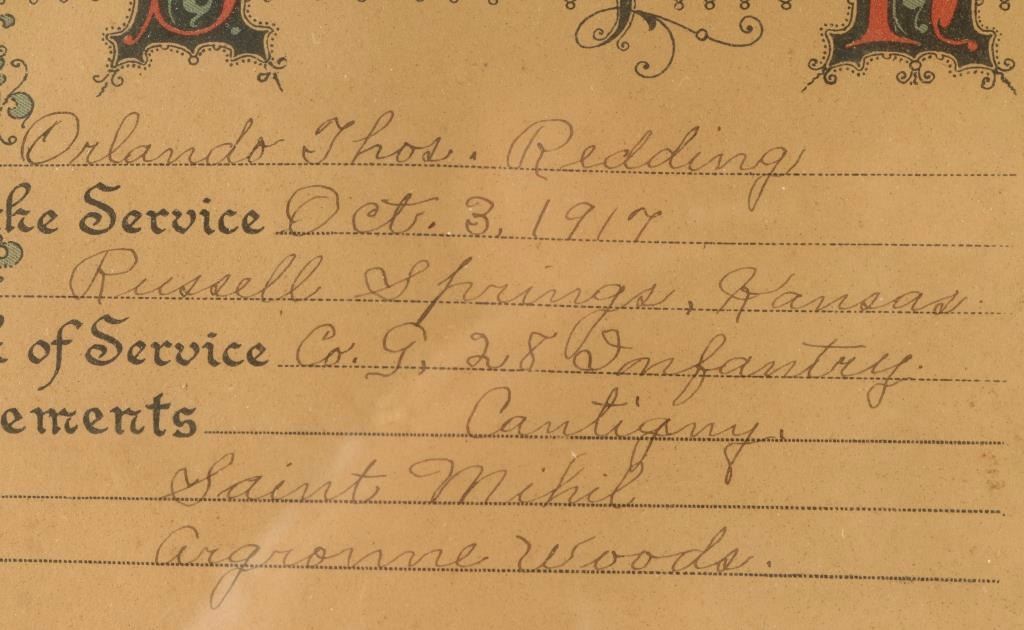 Orlando Thos. Redding
the Service Oct. 3, 1917
Russell Springs, Kansas.
of Service Co. G, 28 Infantry.
ements Cantigny,
Saint Mihil
Argronne Woods.